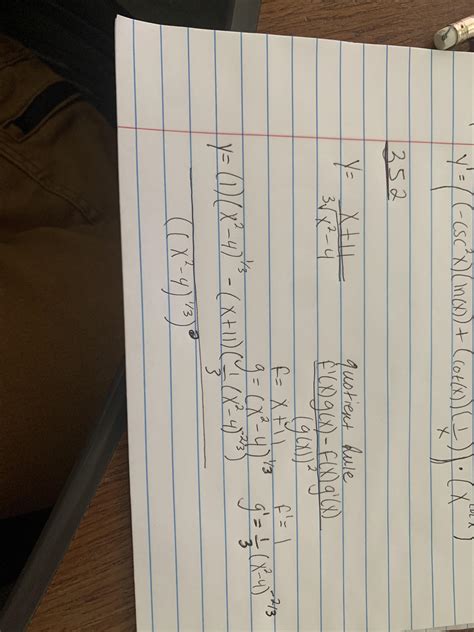 y' = ((-csc²x)(ln(x)) + (cot(x))(1/x)) · (x^cot x)
352
y = (x+11)/∛(x²-4)
quotient rule
(f'(x)g(x) - f(x)g'(x))/(g(x))²
f = x+11 f' = 1
g = (x²-4)^1/3 g' = 1/3 (x²-4)^-2/3
y = ((1)(x²-4)^1/3 - (x+11)(1/3 (x²-4)^-2/3))/((x²-4)^1/3)²